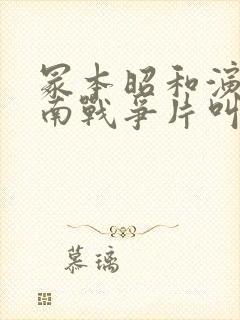 冢本昭和演
南戰爭片叫
慕璃